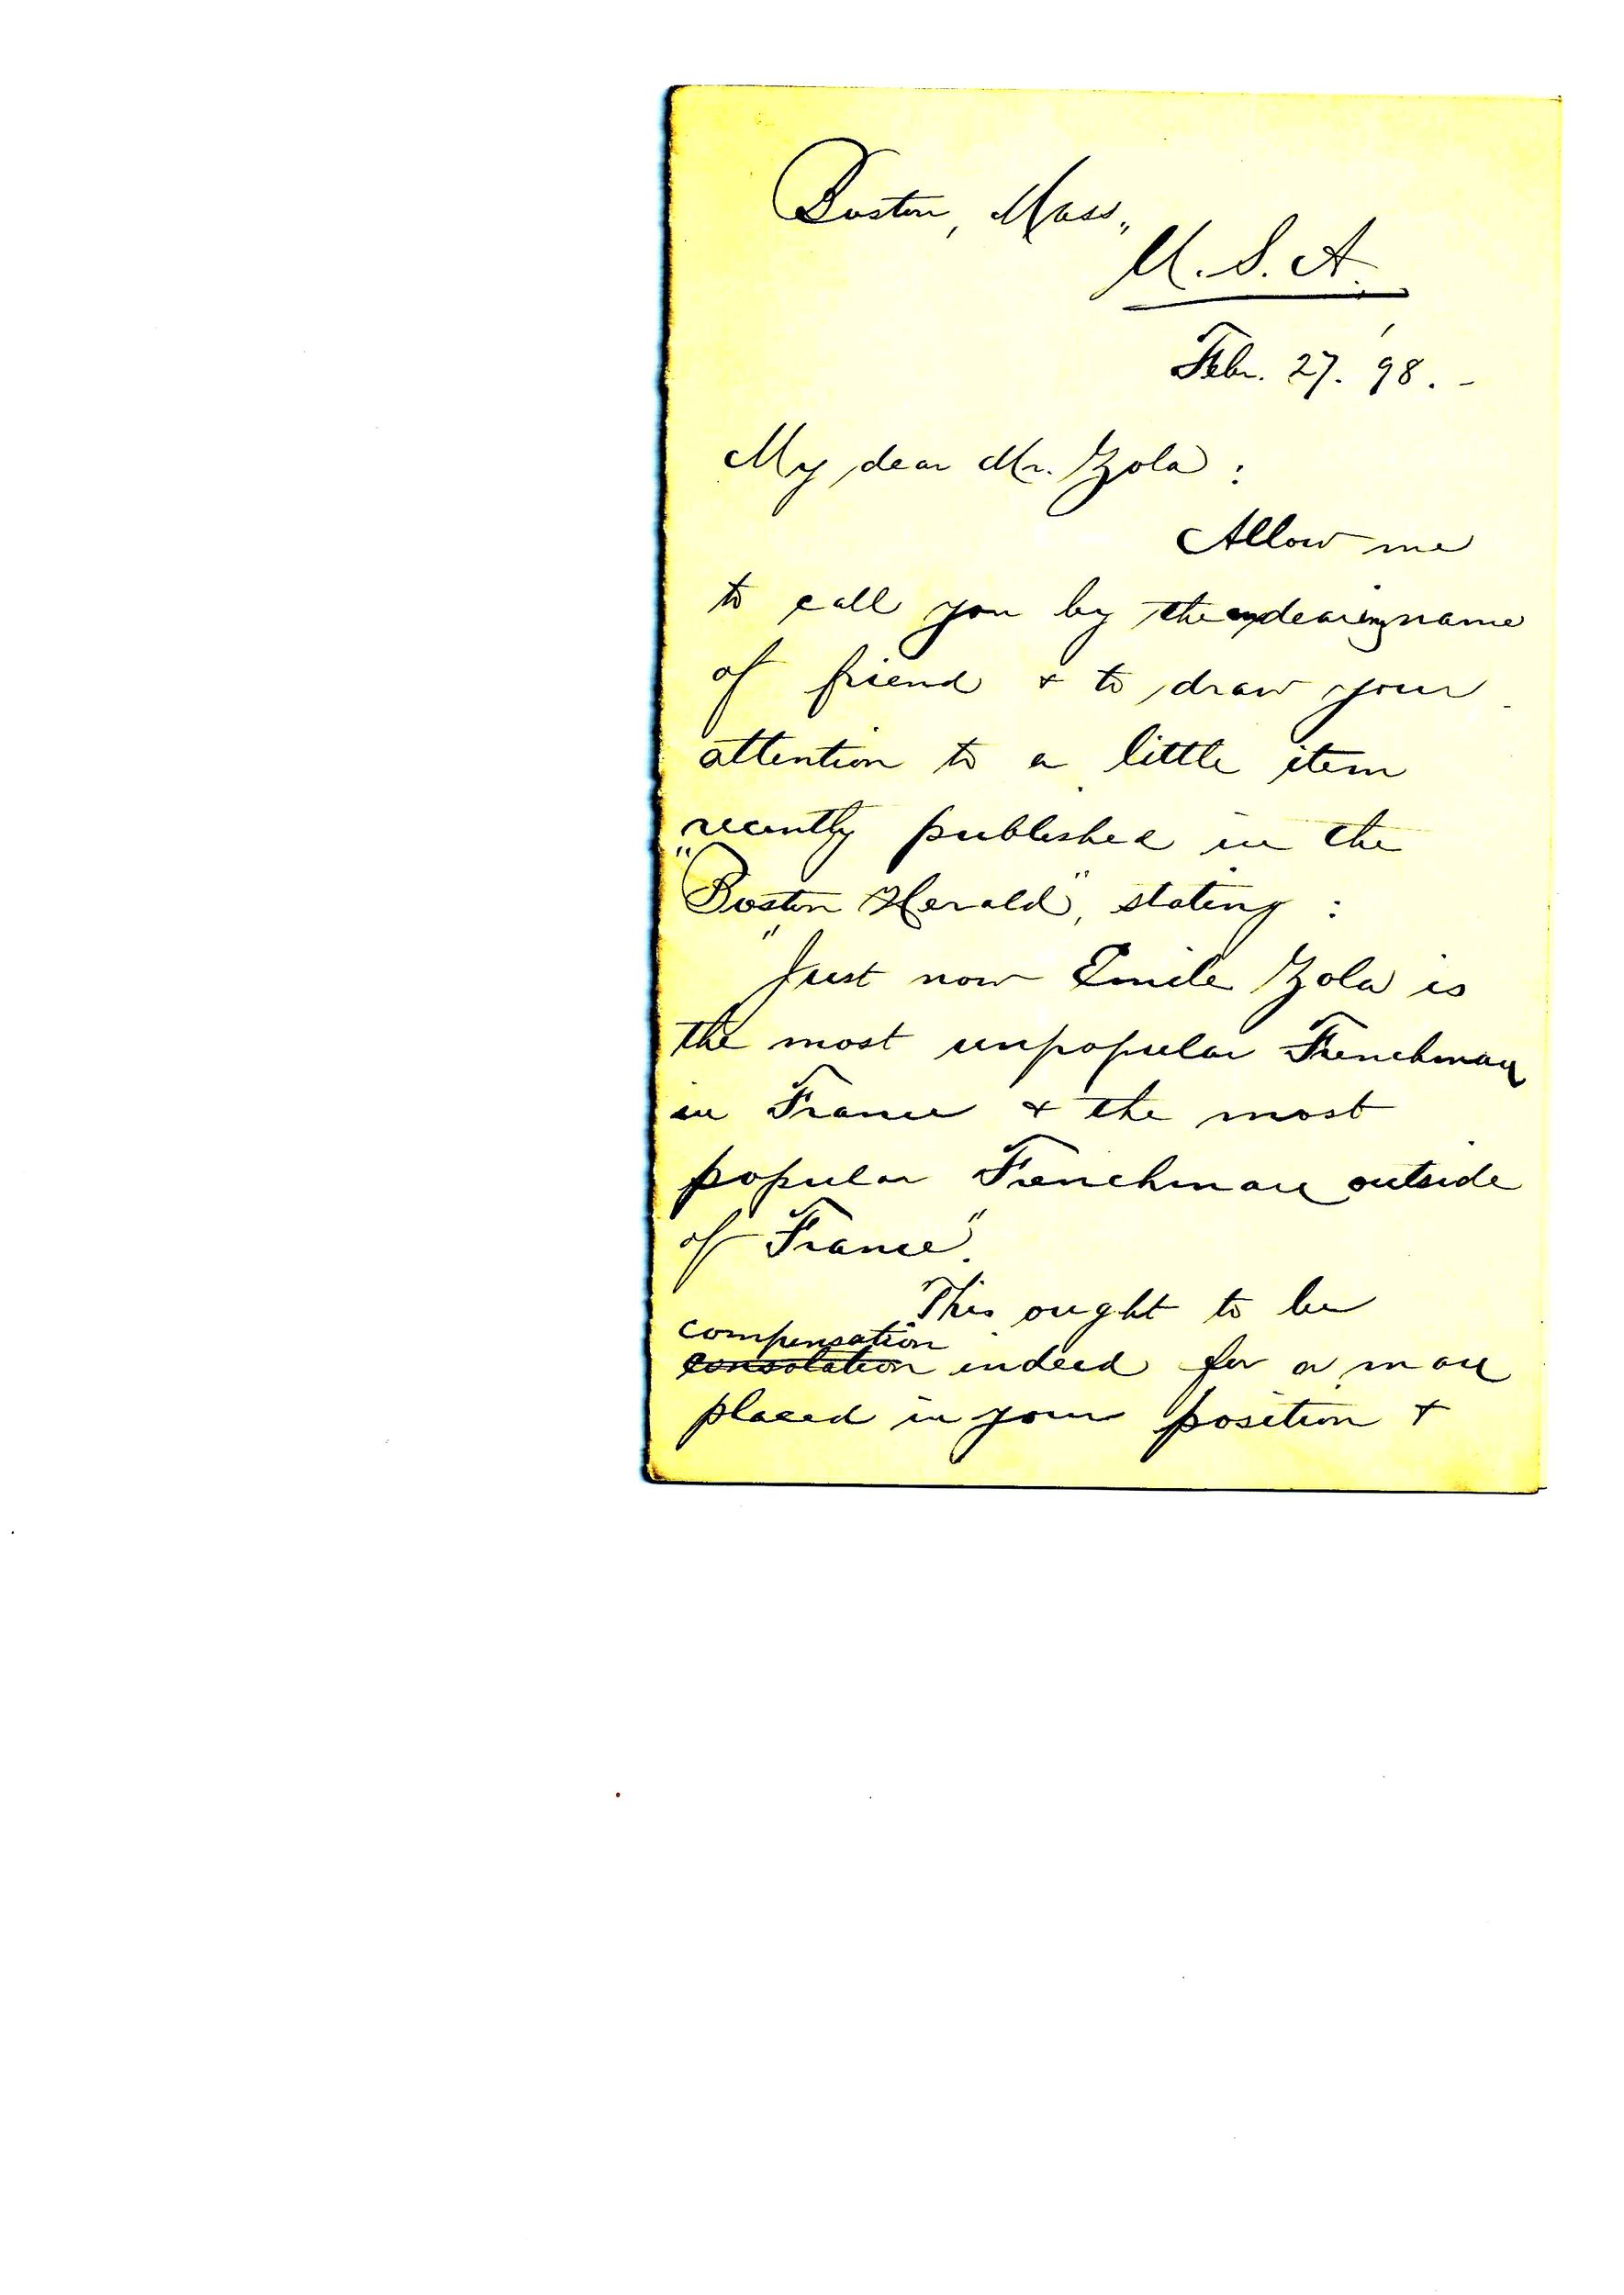 Boston, Mass.,
U.S.A.
Febr. 27. '98. -
My dear Mr. Zola :
Allow me
to call you by the endearing name
of friend & to draw your
attention to a little item
recently published in the
"Boston Herald", stating :
"Just now Emile Zola is
the most unpopular Frenchman
in France & the most
popular Frenchman outside
of France".
This ought to be
compensation
consolation indeed for a man
placed in your position &